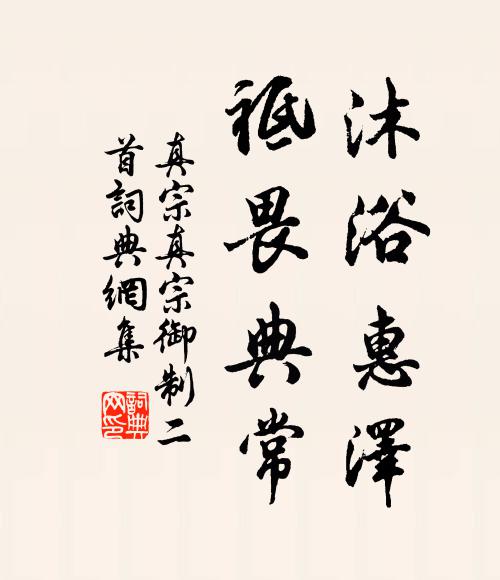 沐浴惠澤
祗畏典常
真宗真宗御制二
首詞典網集
詞典网印